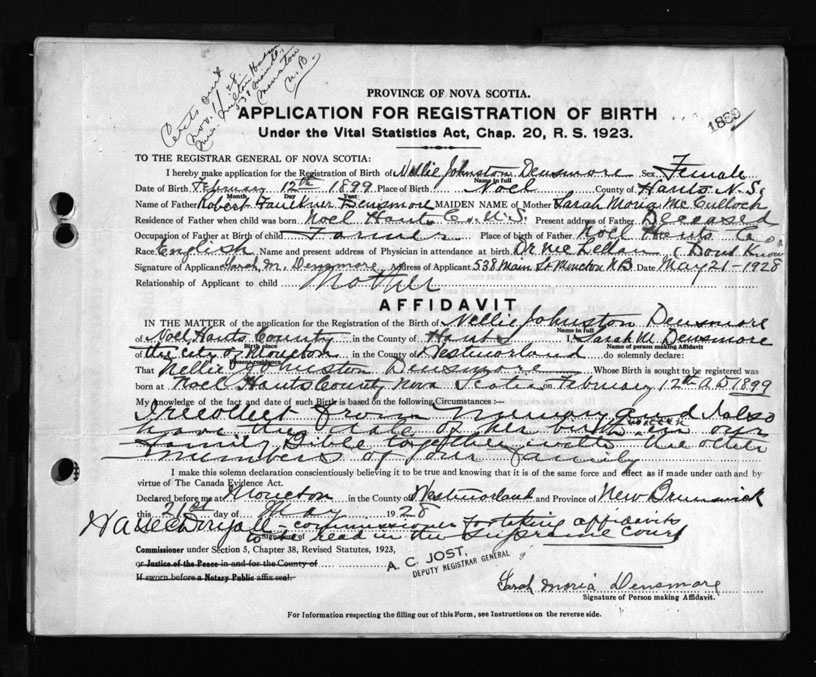 Certs sent
Nov. 1/28.
538 Main St.
Moncton
N.B.
1899
PROVINCE OF NOVA SCOTIA.
APPLICATION FOR REGISTRATION OF BIRTH
Under the Vital Statistics Act, Chap. 20, R. S. 1923.
TO THE REGISTRAR GENERAL OF NOVA SCOTIA:
I hereby make application for the Registration of Birth of Nellie Johnston Densmore Sex Female
Name in full
Date of Birth February 12th 1899 Place of Birth Noel County of Hants N.S.
Month Day Year
Name of Father Robert Faulkner Densmore MAIDEN NAME of Mother Sarah Moria McCulloch
Residence of Father when child was born Noel Hants Co N.S. Present address of Father Deceased
Occupation of Father at Birth of child Farmer Place of birth of Father Noel Hants Co
Race English Name and present address of Physician in attendance at birth Dr McLellan (Dont Know
Signature of Applicant Sarah M. Densmore Address of Applicant 538 Main St Moncton N.B. Date May 21-1928
Relationship of Applicant to child Mother
AFFIDAVIT
IN THE MATTER of the application for the Registration of the Birth of Nellie Johnston Densmore
Name in full
of Noel Hants County in the County of Hants I, Sarah M. Densmore
Birth place Name of person making Affidavit
of the City of Moncton in the County of Westmorland do solemnly declare:
Present residence
That Nellie Johnston Densmore Whose Birth is sought to be registered was
born at Noel Hants County Nova Scotia on February 12th A.D. 1899
My knowledge of the fact and date of such Birth is based on the following Circumstances:—
I recollect from memory and I also
have the date of her birth written in our
family Bible together with the other
members of our family
I make this solemn declaration conscientiously believing it to be true and knowing that it is of the same force and effect as if made under oath and by
virtue of The Canada Evidence Act.
Declared before me at Moncton in the County of Westmorland and Province of New Brunswick
this 21st day of May 1928
commissioner for taking affidavits
to be read in the Supreme Court
Signature of
Commissioner under Section 5, Chapter 38, Revised Statutes, 1923,
or Justice of the Peace in and for the County of
If sworn before a Notary Public affix seal.
A. C. JOST,
DEPUTY REGISTRAR GENERAL
Sarah Moria Densmore
Signature of Person making Affidavit.
For Information respecting the filling out of this Form, see Instructions on the reverse side.